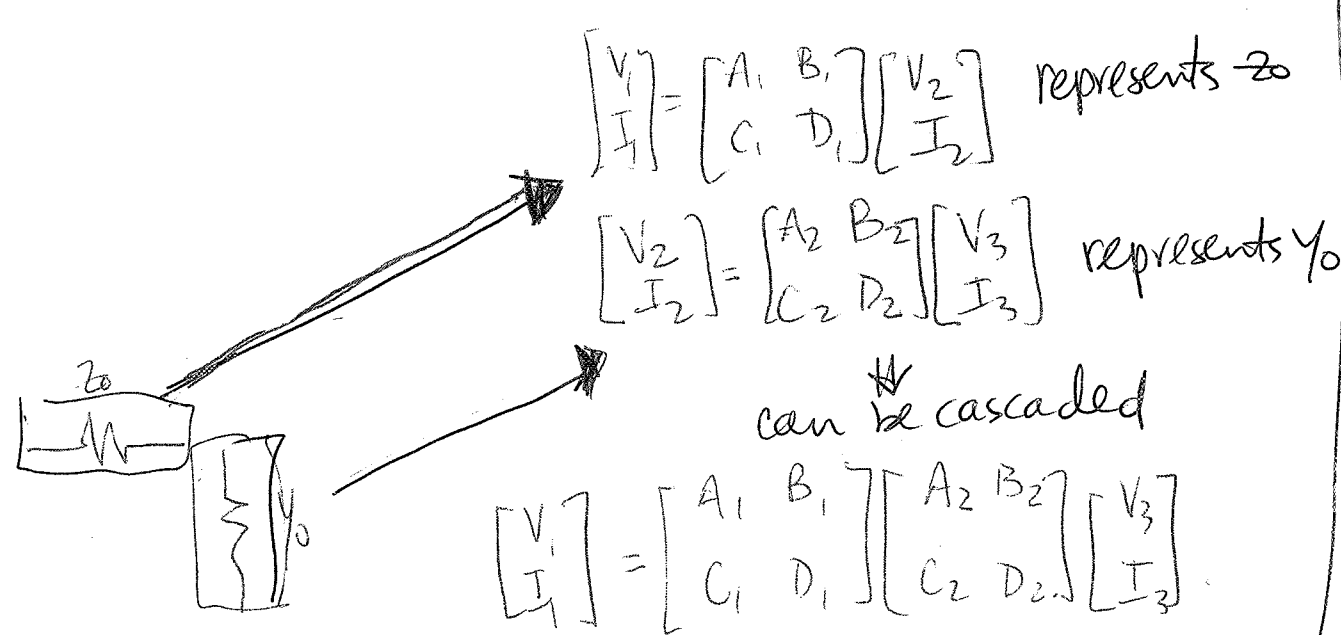 [V₁ I₁] = [A₁ B₁ C₁ D₁] [V₂ I₂] represents Z₀
[V₂ I₂] = [A₂ B₂ C₂ D₂] [V₃ I₃] represents Y₀
⇓
can be cascaded
[V₁ I₁] = [A₁ B₁ C₁ D₁] [A₂ B₂ C₂ D₂] [V₃ I₃]
Z₀
Y₀